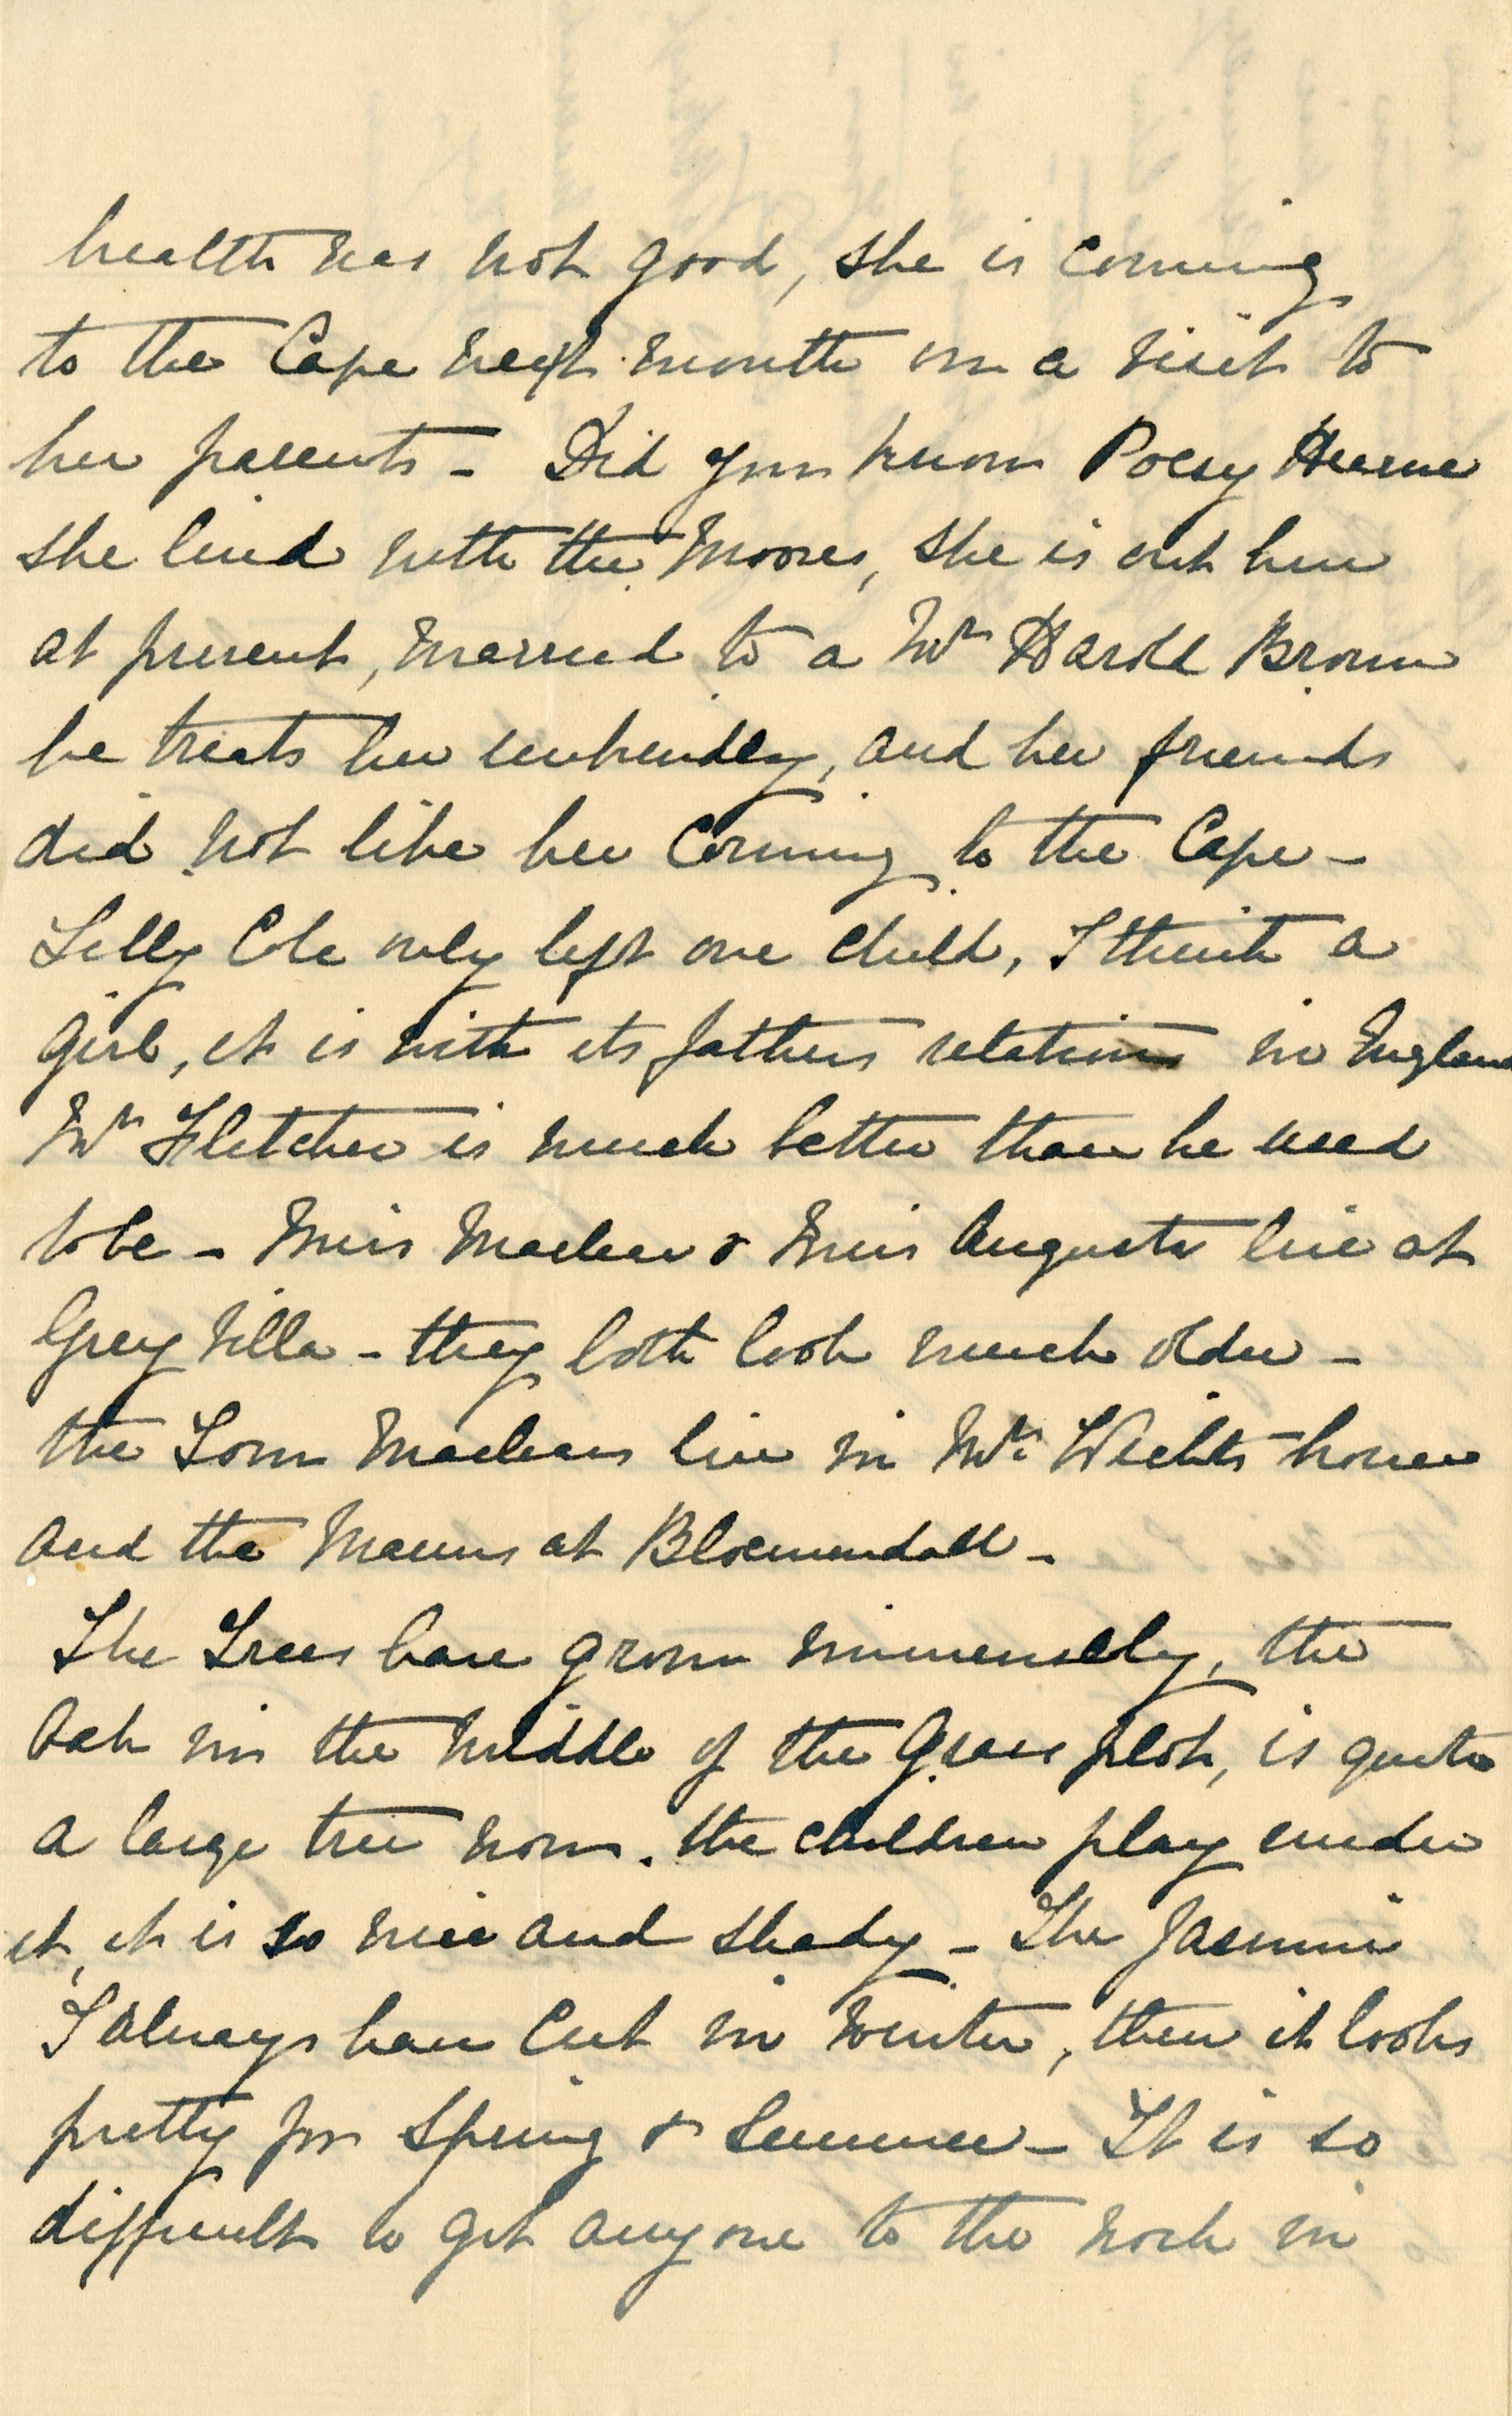 health was not good, she is coming
to the Cape next month on a visit to
her parents - Did you know Poesy Hearne
she lived with the Moores, she is out here
at present, married to a Mr Harold Brown
he treats her unkindly, and her friends
did not like her coming to the Cape -
Lilly Cole only left one child, I think a
girl, it is with its fathers relations in England
Mr Fletcher is much better than he used
to be - Miss Maclear & Miss Augusta live at
Grey Villa - they both look much older -
the Tom Maclears live in Mrs house
and the Manns at Bloemendall -
The Trees have grown immensely, the
Oak in the middle of the Grass plot, is quite
a large tree now. the children play under
it, it is so nice and shady - The Jasmine
I always have cut in Winter, then it looks
pretty for Spring & Summer - It is so
difficult to get anyone to the work in